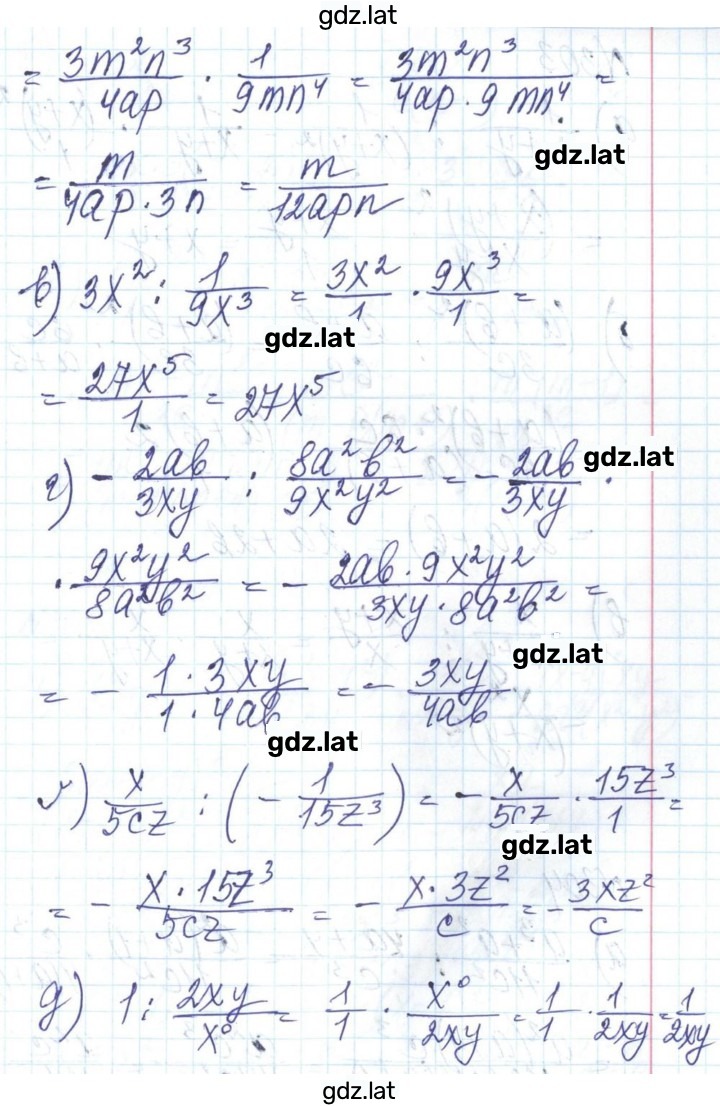 gdz.lat
= 3m²n³/4ap · 1/9mn⁴ = 3m²n³/4ap·9mn⁴ =
gdz.lat
= m/4ap·3n = m/12apn
в) 3x² : 1/9x³ = 3x²/1 · 9x³/1 =
gdz.lat
= 27x⁵/1 = 27x⁵
г) - 2ab/3xy : 8a²b²/9x²y² = - 2ab/3xy ·
gdz.lat
· 9x²y²/8a²b² = - 2ab·9x²y²/3xy·8a²b² =
gdz.lat
= - 1·3xy/1·4ab = - 3xy/4ab
gdz.lat
x/5cz : (- 1/15z³) = - x/5cz · 15z³/1 =
gdz.lat
= - x·15z³/5cz = - x·3z²/c = - 3xz²/c
д) 1 : 2xy/x⁰ = 1/1 · x⁰/2xy = 1/1 · 1/2xy = 1/2xy
gdz.lat